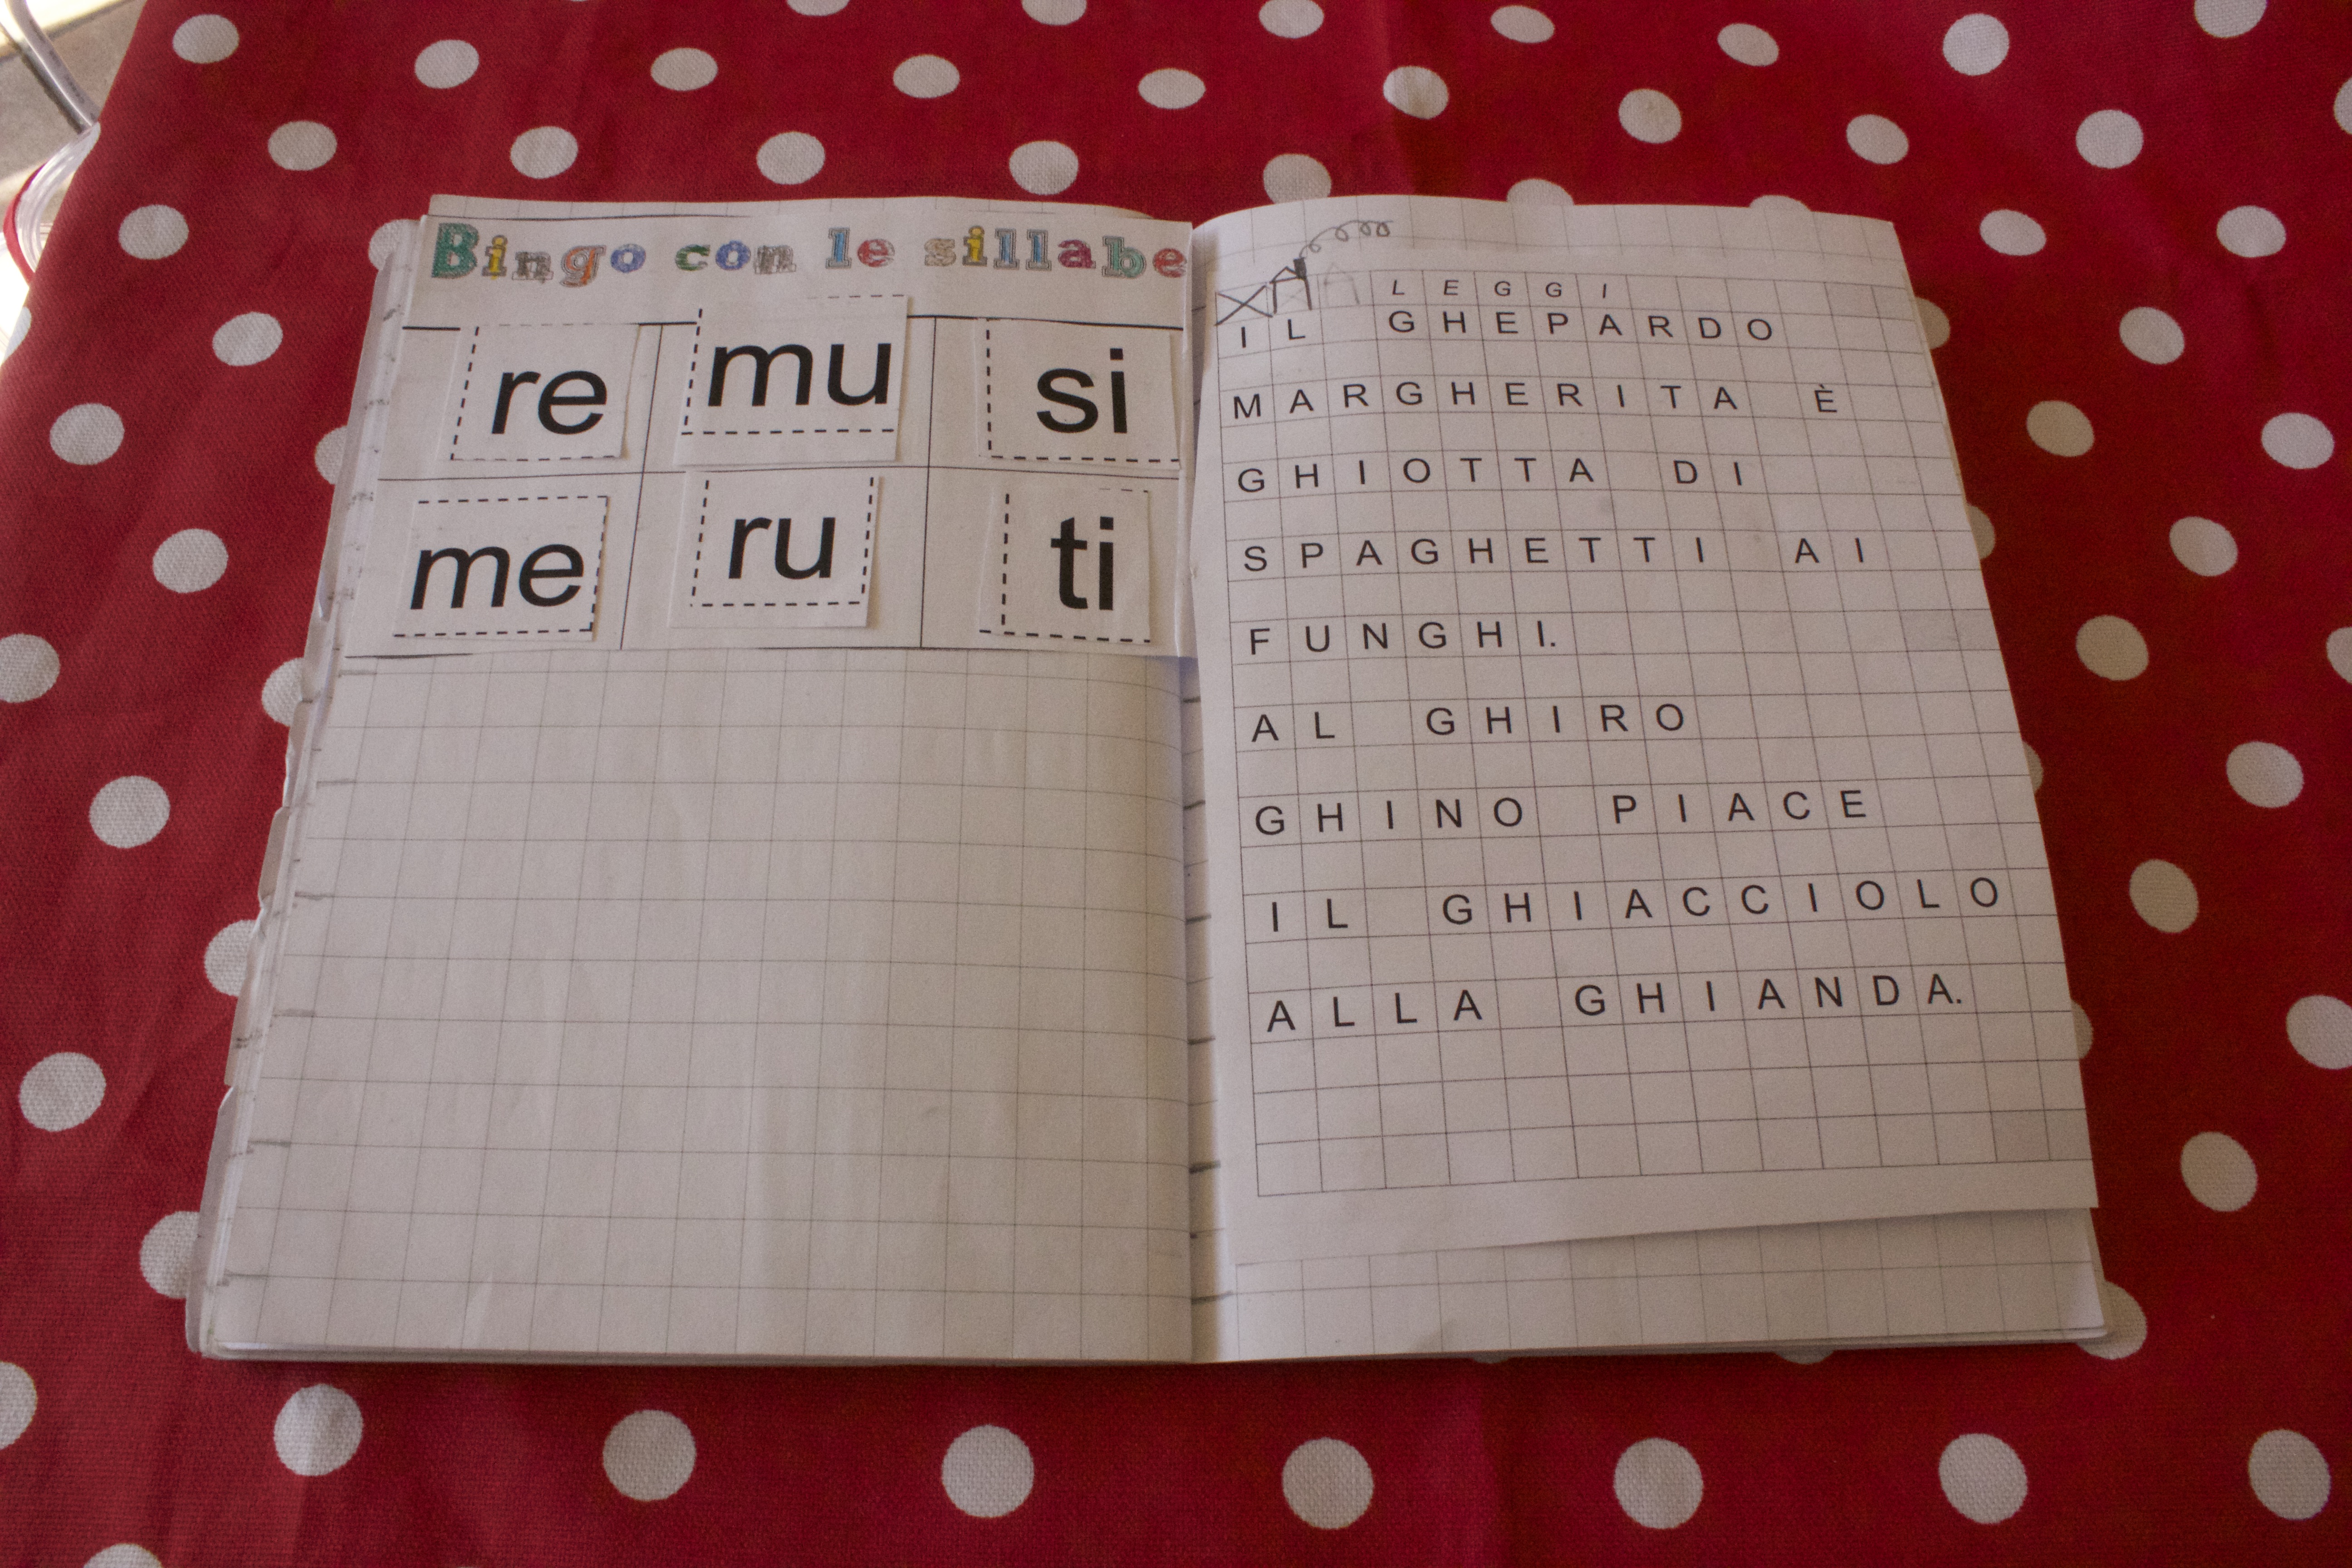 Bingo con le sillabe
re mu si
me ru ti
LEGGI
IL GHEPARDO
MARGHERITA È
GHIOTTA DI
SPAGHETTI AI
FUNGHI.
AL GHIRO
GHINO PIACE
IL GHIACCIOLO
ALLA GHIANDA.